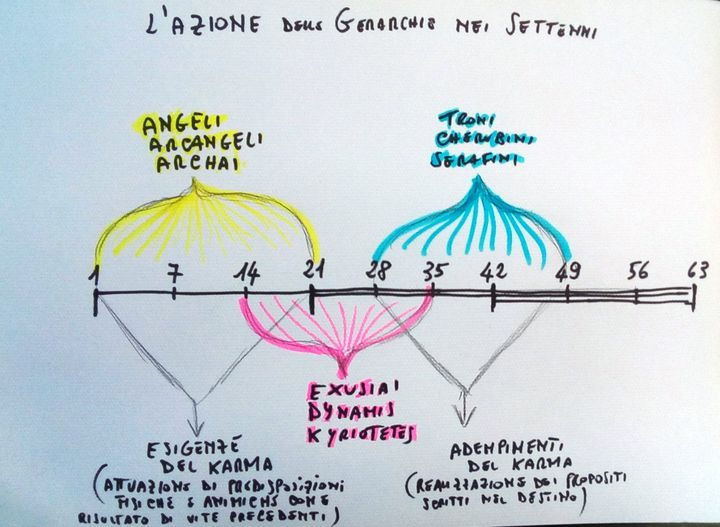 L'AZIONE DELLE GERARCHIE NEI SETTENNI
ANGELI
ARCANGELI
ARCHAI
TRONI
CHERUBINI
SERAFINI
1 7 14 21 28 35 42 49 56 63
EXUSIAI
DYNAMIS
KYRIOTETES
ESIGENZE
DEL KARMA
(ATTUAZIONE DI PREDISPOSIZIONI
FISICHE E ANIMICHE COME
RISULTATO DI VITE PRECEDENTI)
ADEMPIMENTI
DEL KARMA
(REALIZZAZIONE DEI PROPOSITI
SCRITTI NEL DESTINO)